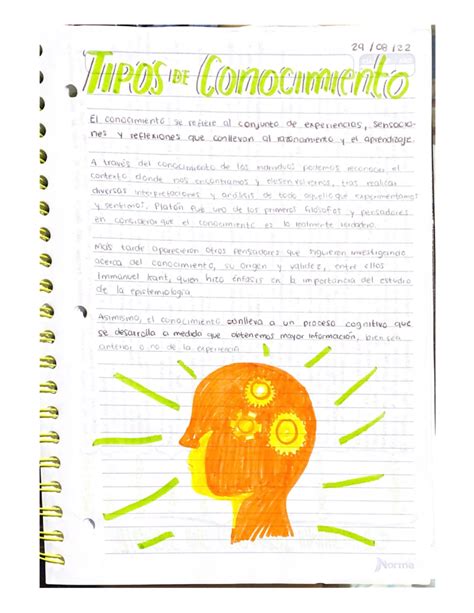 29/08/22
TIPOS DE CONOCIMIENTO
El conocimiento se refiere al conjunto de experiencias, sensacio-
nes y reflexiones que conllevan al razonamiento y el aprendizaje.
A través del conocimiento de los individuos podemos reconocer el
contexto donde nos encontramos y desenvolvemos, tras realizar
diversas interpretaciones y análisis de todo aquello que experimentamos
y sentimos. Platón fue uno de los primeros filósofos y pensadores
en considerar que el conocimiento es lo realmente verdadero.
Más tarde aparecieron otros pensadores que siguieron investigando
acerca del conocimiento, su origen y validez, entre ellos
Immanuel Kant, quien hizo énfasis en la importancia del estudio
de la epistemiología.
Asimismo, el conocimiento conlleva a un proceso cognitivo que
se desarrolla a medida que obtenemos mayor información, bien sea
anterior o no de la experiencia.
Norma